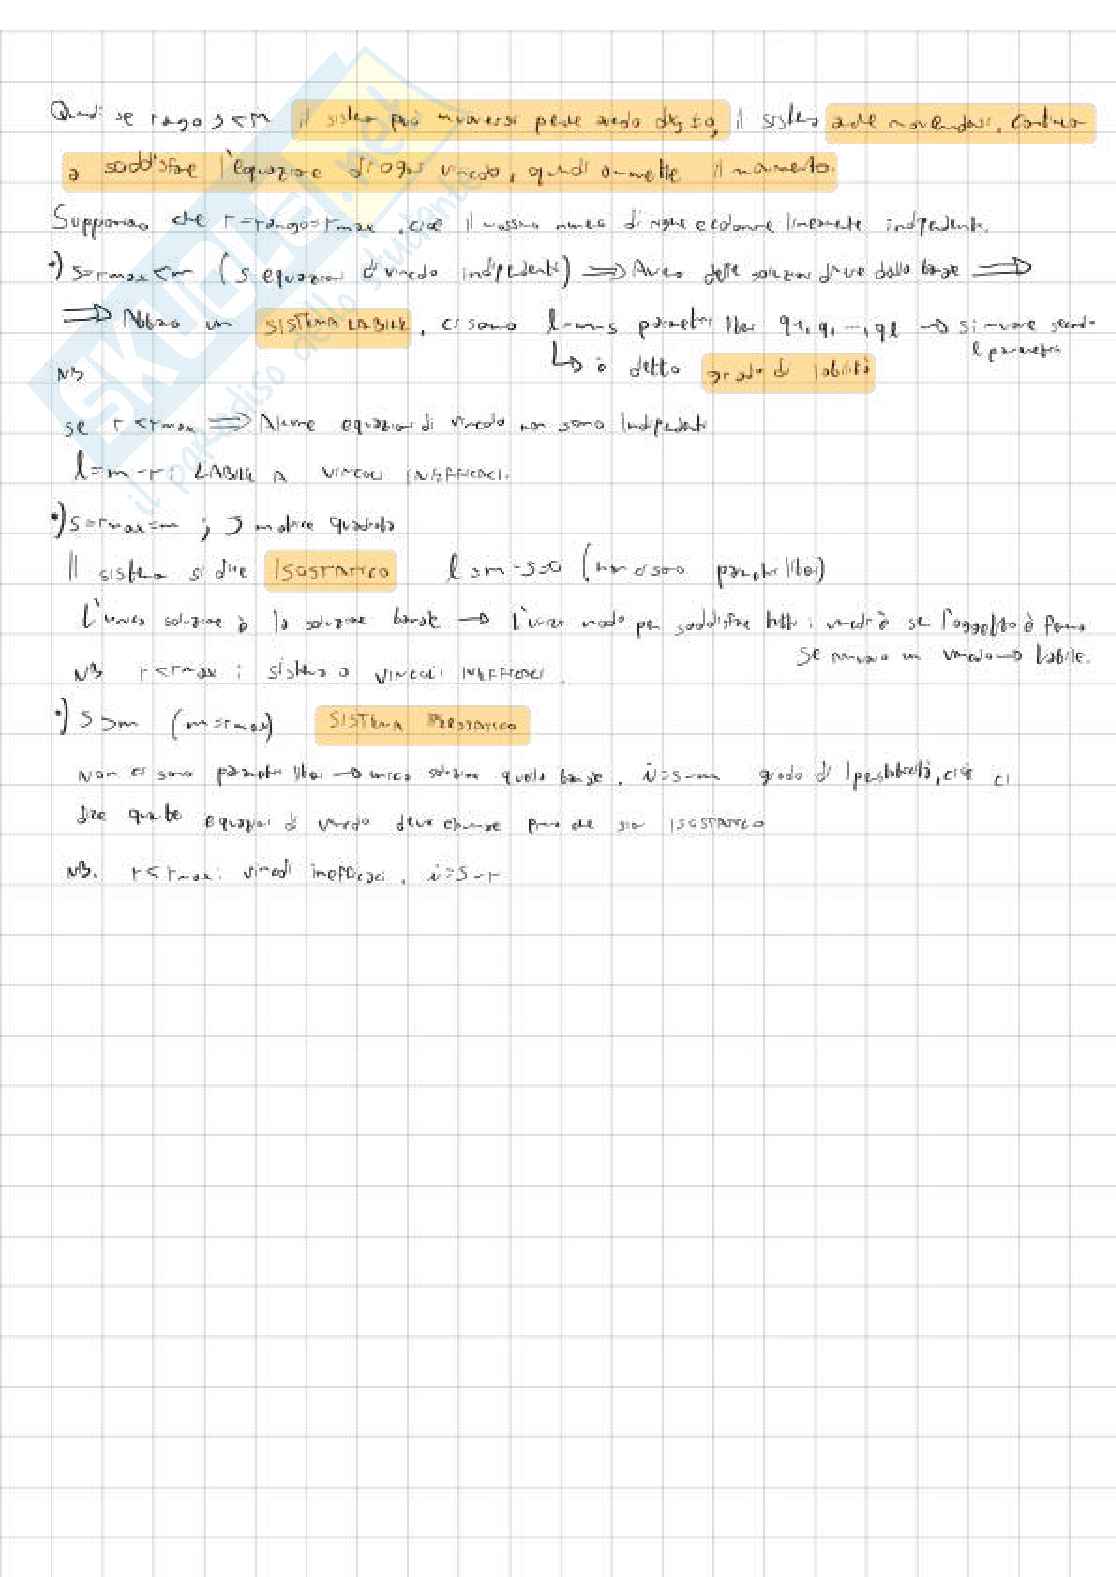 Quindi se rango s<m il sistema può muoversi perché avendo il sistema anche muovendosi, continua
a soddisfare l'equazione di ogni vincolo, quindi ammette il movimento.
Supponiamo che r=rango=rmax, cioè il massimo numero di righe e colonne linearmente indipendenti.
•) s=rmax<m (s equazioni di vincolo indipendenti) ⟹ Avremo delle soluzioni diverse dalla banale ⟹
⟹ Abbiamo un SISTEMA LABILE, ci sono l=m-s parametri liberi q1, q, ..., ql → si muove secondo
l parametri
↳ è detto grado di labilità
NB
se r<rmax ⟹ Alcune equazioni di vincolo non sono indipendenti
l=m-r: LABILE A VINCOLI INEFFICACI.
•) s=rmax=m ; J matrice quadrata
Il sistema si dice ISOSTATICO l=m-s=0 (non ci sono parametri liberi)
L'unica soluzione è la soluzione banale → l'unico modo per soddisfare tutti i vincoli è se l'oggetto è fermo
Se rimuovo un vincolo → labile.
NB r<rmax : sistema a VINCOLI INEFFICACI.
•) s>m (m=rmax) SISTEMA IPERSTATICO
Non ci sono parametri liberi → unica soluzione quella banale. i=s-m grado di iperstaticità, cioè ci
dice quante equazioni di vincolo deve prima che sia ISOSTATICO
NB. r<rmax: vincoli inefficaci, i=s-r
SKUOLA.net
il paradiso dello studente